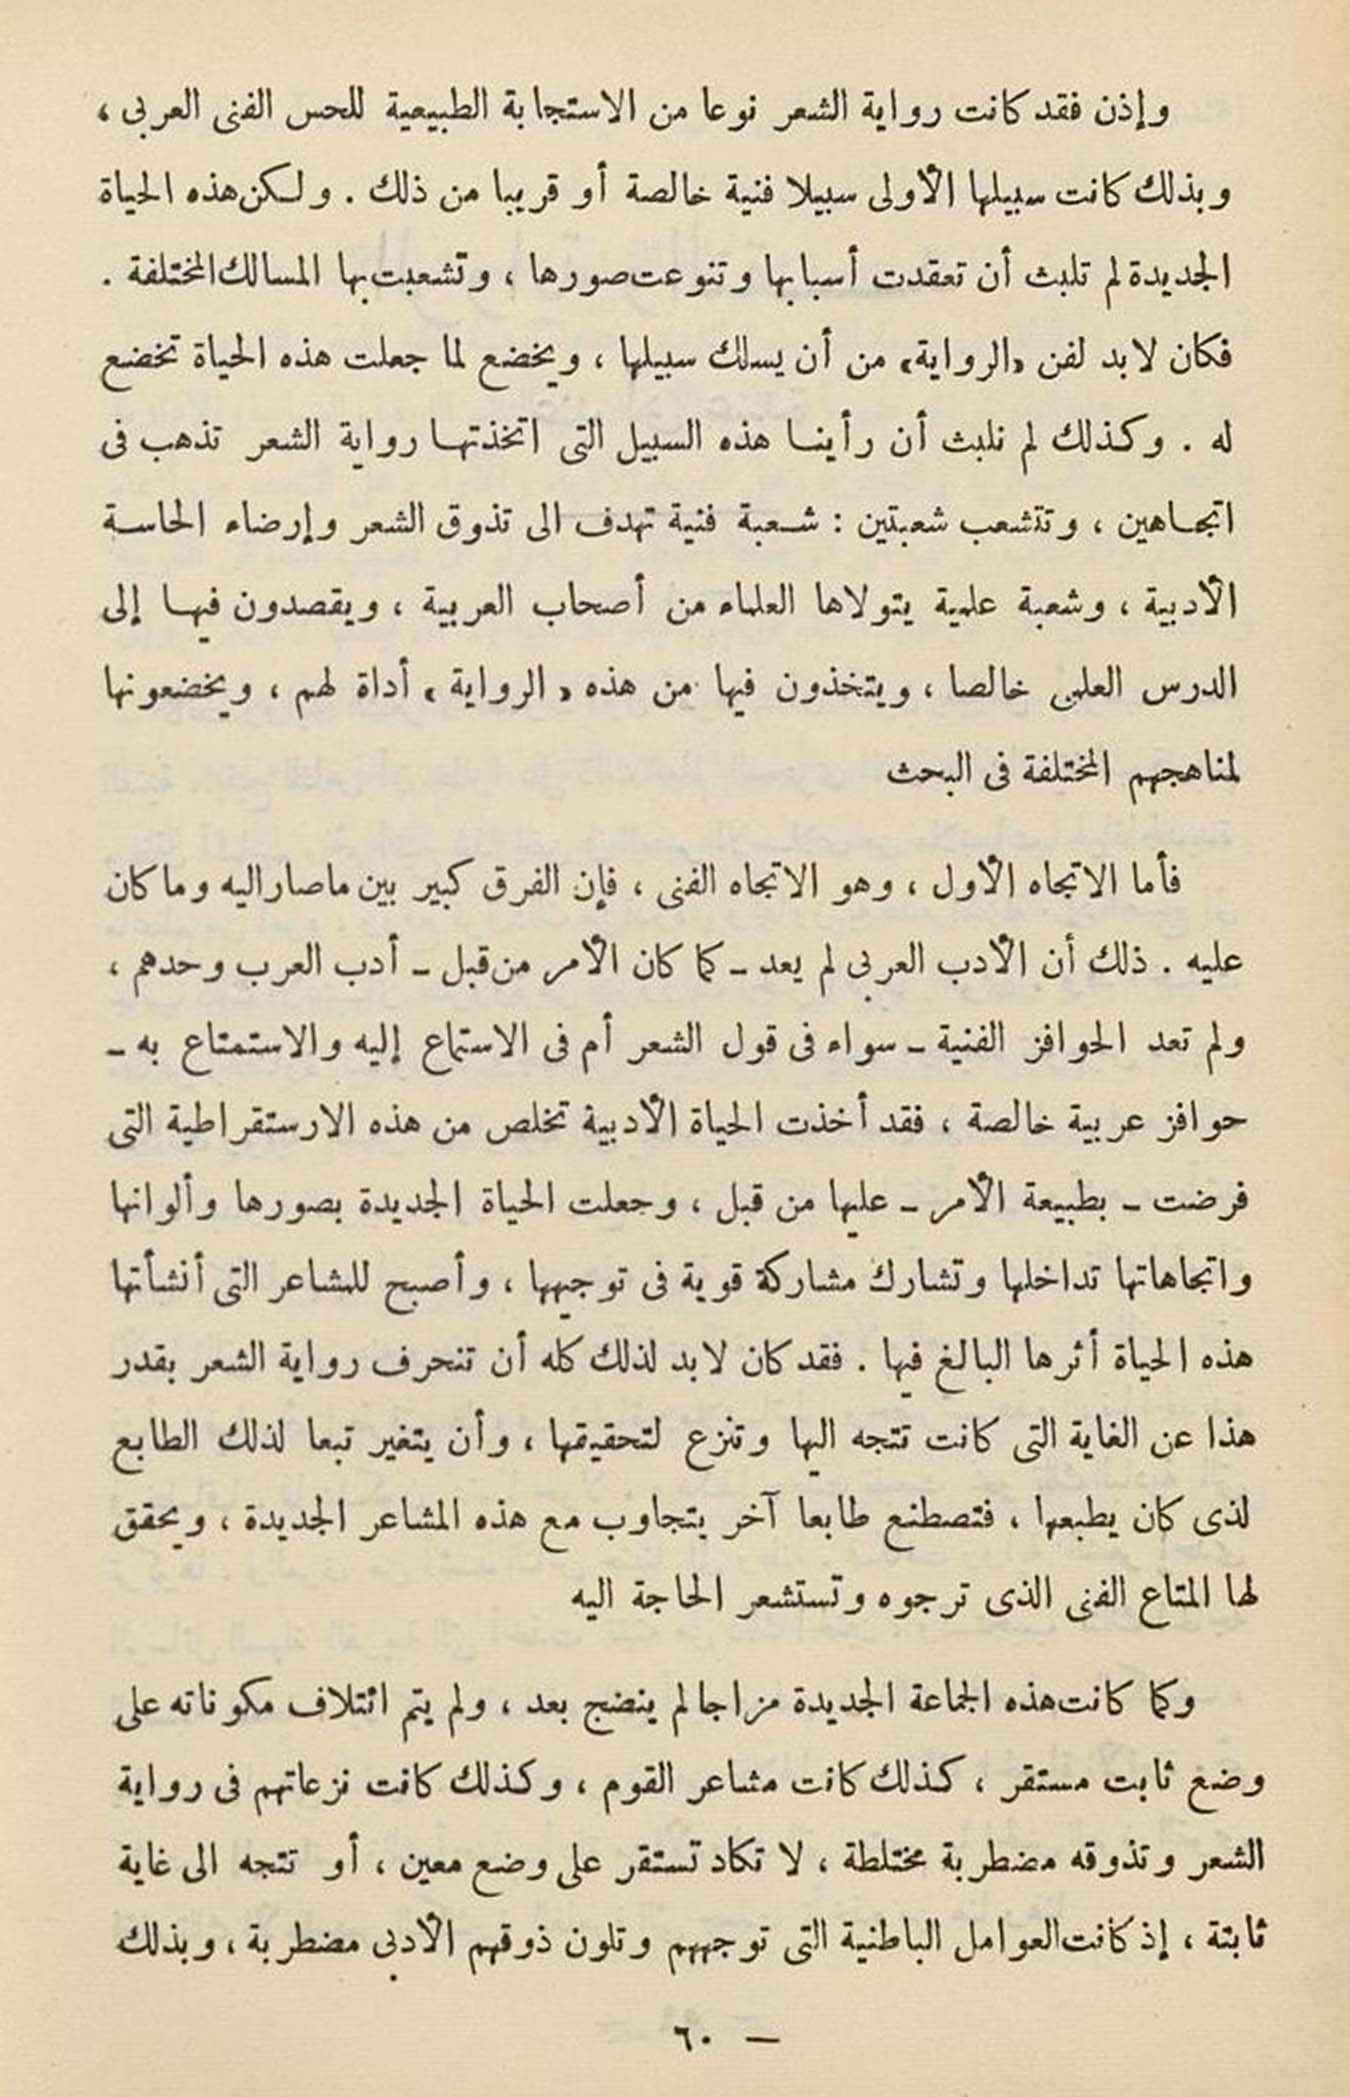 وإذن فقد كانت رواية الشعر نوعا من الاستجابة الطبيعية للحس الفنى العربى ،
وبذلك كانت سبيلها الأولى سبيلا فنية خالصة أو قريبا من ذلك . ولكن هذه الحياة
الجديدة لم تلبث أن تعقدت أسبابها وتنوعت صورها ، وتشعبت بها المسالك المختلفة .
فكان لا بد لفن «الرواية» من أن يسلك سبيلها ، ويخضع لما جعلت هذه الحياة تخضع
له . وكذلك لم نلبث أن رأينا هذه السبيل التى اتخذتها رواية الشعر تذهب فى
اتجاهين ، وتتشعب شعبتين : شعبة فنية تهدف الى تذوق الشعر وإرضاء الحاسة
الأدبية ، وشعبة علمية يتولاها العلماء من أصحاب العربية ، ويقصدون فيها إلى
الدرس العلمى خالصا ، ويتخذون فيها من هذه « الرواية » أداة لهم ، ويخضعونها
لمناهجهم المختلفة فى البحث
فأما الاتجاه الأول ، وهو الاتجاه الفنى ، فإن الفرق كبير بين ما صار اليه وما كان
عليه . ذلك أن الأدب العربى لم يعد – كما كان الأمر من قبل – أدب العرب وحدهم ،
ولم تعد الحوافز الفنية – سواء فى قول الشعر أم فى الاستماع إليه والاستمتاع به –
حوافز عربية خالصة ، فقد أخذت الحياة الأدبية تخلص من هذه الارستقراطية التى
فرضت – بطبيعة الأمر – عليها من قبل ، وجعلت الحياة الجديدة بصورها وألوانها
واتجاهاتها تداخلها وتشارك مشاركة قوية فى توجيهها ، وأصبح للمشاعر التى أنشأتها
هذه الحياة أثرها البالغ فيها . فقد كان لا بد لذلك كله أن تنحرف رواية الشعر بقدر
هذا عن الغاية التى كانت تتجه اليها وتنزع لتحقيقها ، وأن يتغير تبعا لذلك الطابع
لذى كان يطبعها ، فتصطنع طابعا آخر يتجاوب مع هذه المشاعر الجديدة ، ويحقق
لها المتاع الفنى الذى ترجوه وتستشعر الحاجة اليه
وكما كانت هذه الجماعة الجديدة مزاجا لم ينضج بعد ، ولم يتم ائتلاف مكوناته على
وضع ثابت مستقر ، كذلك كانت مشاعر القوم ، وكذلك كانت نزعاتهم فى رواية
الشعر وتذوقه مضطربة مختلطة ، لا تكاد تستقر على وضع معين ، أو تتجه الى غاية
ثابتة ، إذ كانت العوامل الباطنية التى توجههم وتلون ذوقهم الأدبى مضطربة ، وبذلك
— ٦٠